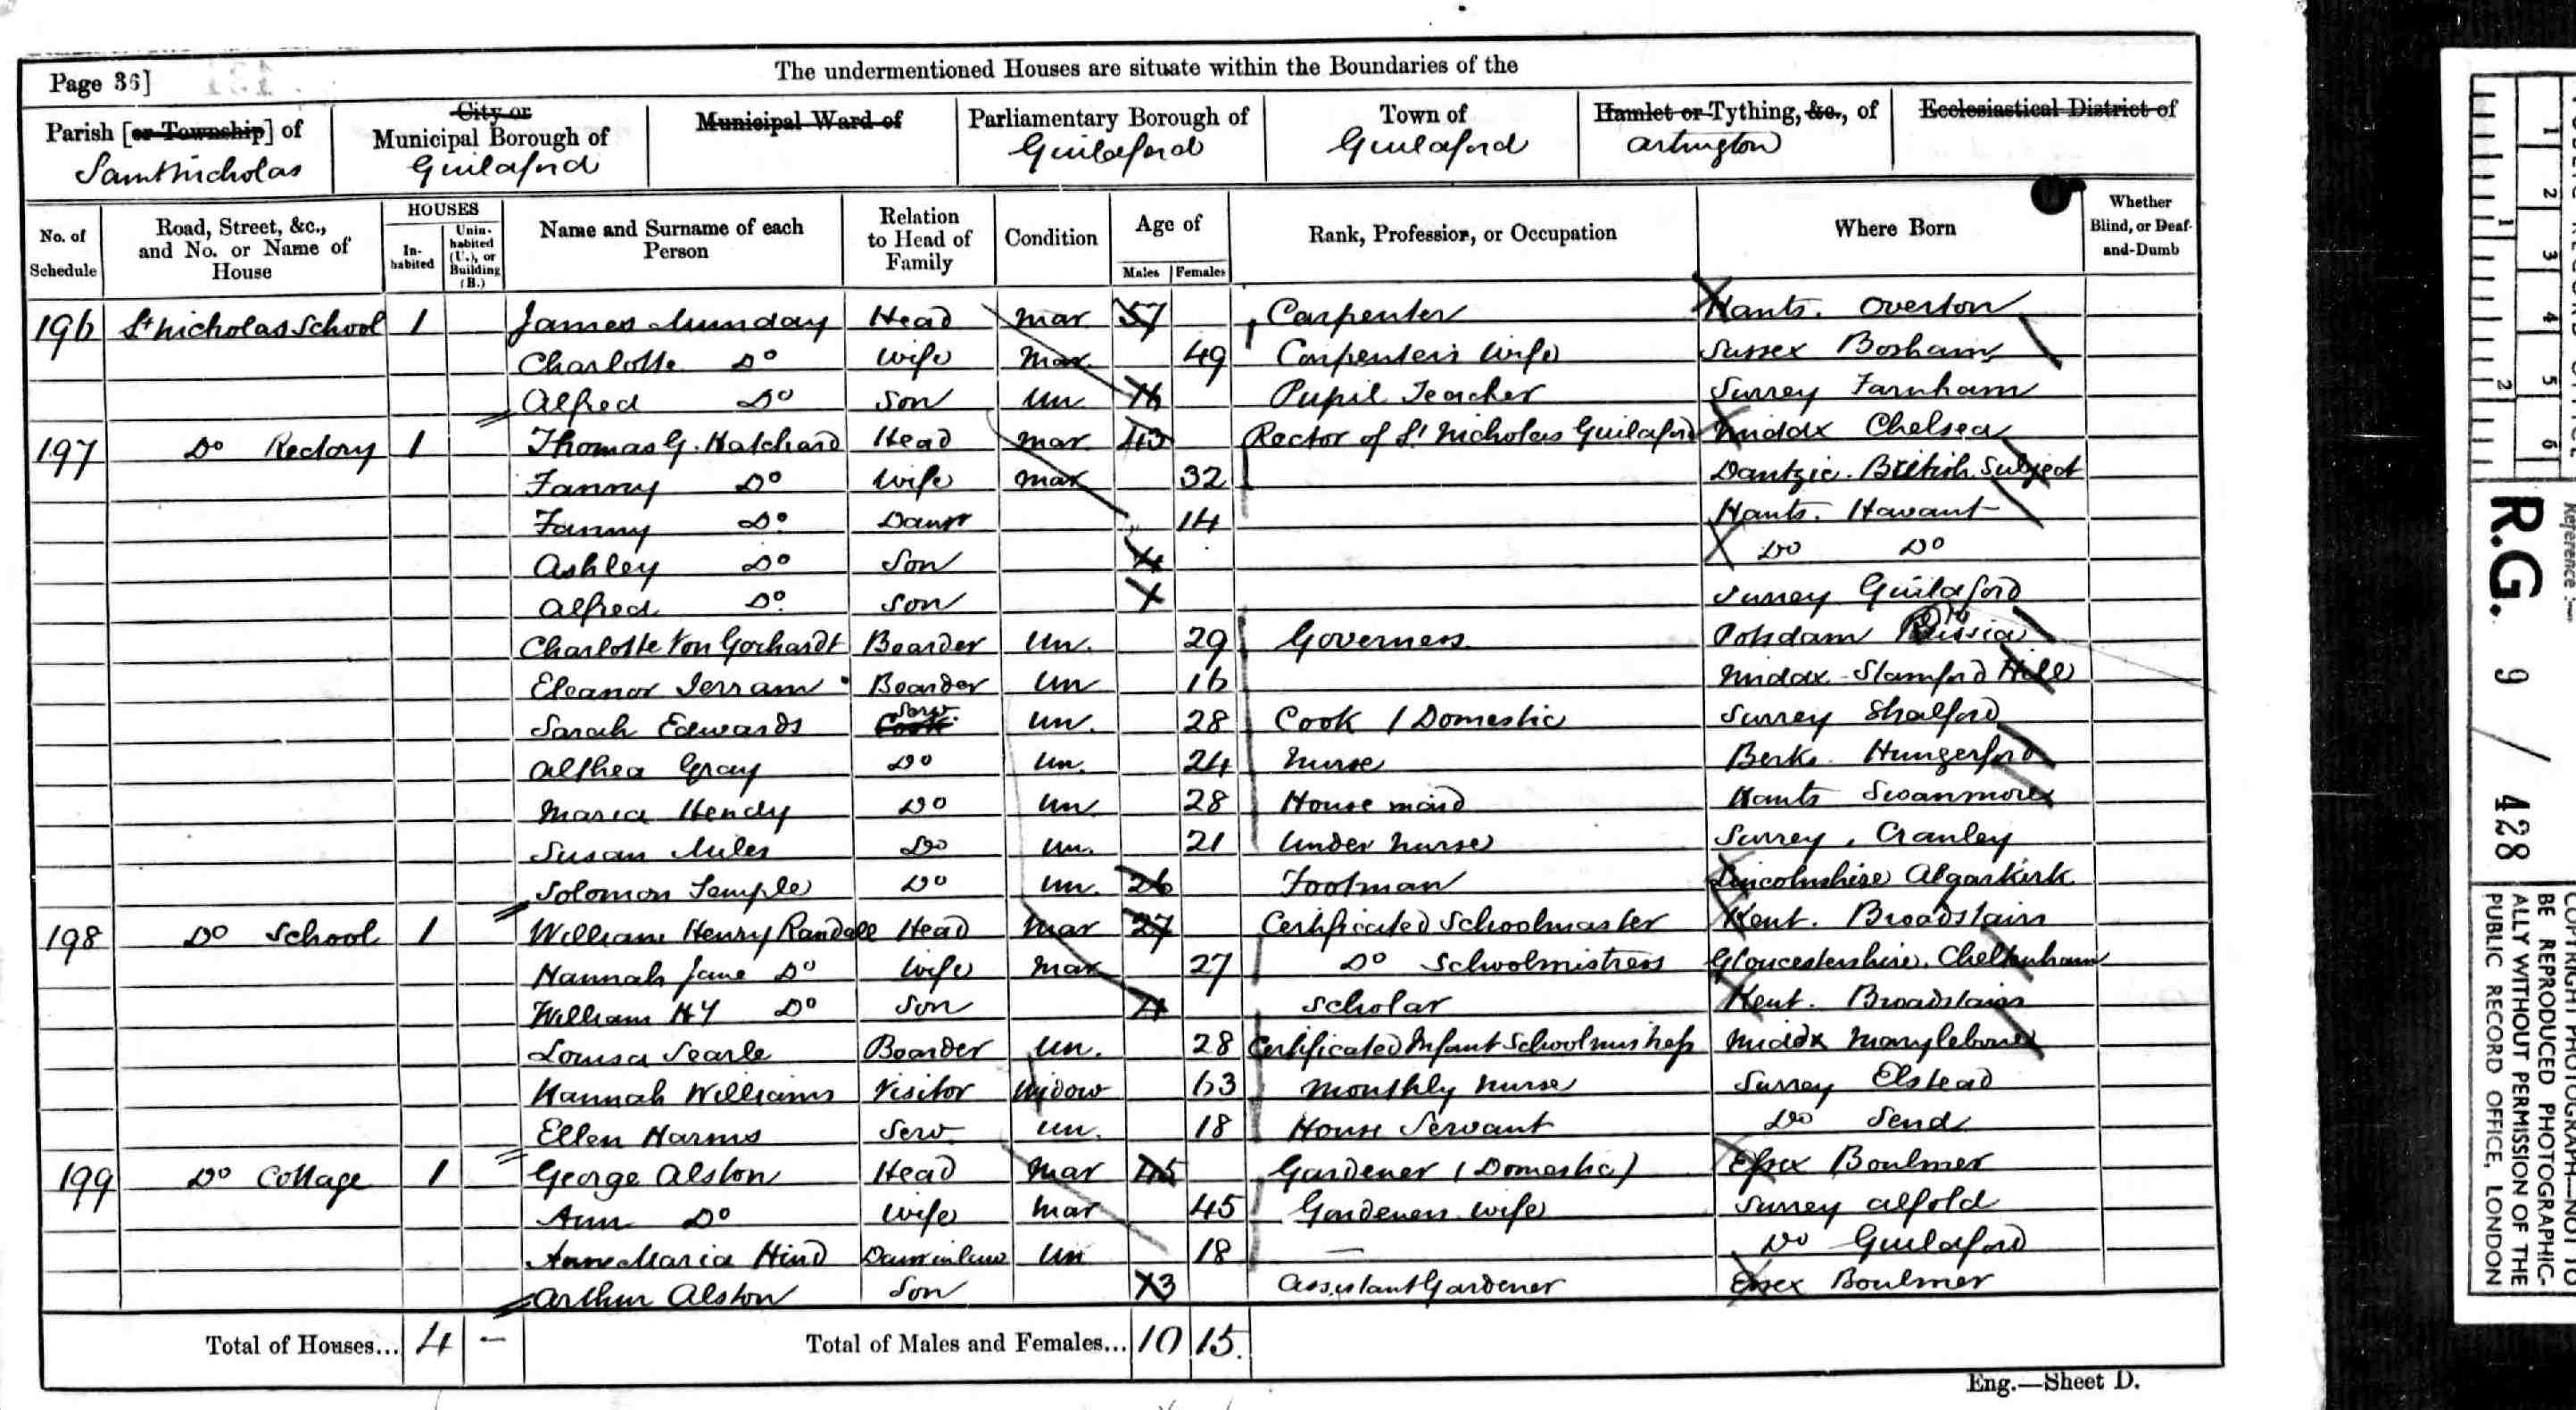 Page 36]
The undermentioned Houses are situate within the Boundaries of the
Parish [or Township] of
Saint Nicholas
City or
Municipal Borough of
Guildford
Municipal Ward of
Parliamentary Borough of
Guildford
Town of
Guildford
Hamlet or Tything, &c., of
Artington
Ecclesiastical District of
No. of Schedule
Road, Street, &c., and No. or Name of House
HOUSES
In-habited
Unin-habited (U.), or Building (B.)
Name and Surname of each Person
Relation to Head of Family
Condition
Age of
Males Females
Rank, Profession, or Occupation
Where Born
Whether Blind, or Deaf-and-Dumb
196 St Nicholas School 1 James Munday Head Mar 57 Carpenter Hants. Overton
Charlotte Do Wife Mar 49 Carpenters Wife Sussex Bosham
Alfred Do Son Un 16 Pupil Teacher Surrey Farnham
197 Do Rectory 1 Thomas G. Hatchard Head Mar 43 Rector of St Nicholas Guildford Middx Chelsea
Fanny Do Wife Mar 32 Dantzic. British Subject
Fanny Do Daur 14 Hants. Havant
Ashley Do Son 4 Do Do
Alfred Do Son 1 Surrey Guildford
Charlotte Von Gorhardt Boarder Un. 29 Governess Potsdam
Eleanor Jerram Boarder Un 16 Middx Stamford Hill
Sarah Edwards Cook Serv. Un. 28 Cook / Domestic Surrey Shalford
Althea Gray Do Un. 24 Nurse Berks. Hungerford
Maria Hendy Do Un 28 House maid Hants Swanmore
Susan Miles Do Un. 21 Under Nurse Surrey, Cranley
Solomon Temple Do Un. 26 Footman Lincolnshire Algarkirk
198 Do School 1 William Henry Randall Head Mar 27 Certificated Schoolmaster Kent. Broadstairs
Hannah Jane Do Wife Mar 27 Do Schoolmistress Gloucestershire. Cheltenham
William Hy Do Son 4 Scholar Kent. Broadstairs
Louisa Searle Boarder Un. 28 Certificated Infant Schoolmistress Middx Marylebone
Hannah Williams Visitor Widow 63 Monthly Nurse Surrey Elstead
Ellen Harms Serv Un. 18 House Servant Do Send
199 Do Cottage 1 George Alston Head Mar 45 Gardener (Domestic) Essex Boulmer
Ann Do Wife Mar 45 Gardeners Wife Surrey Alfold
Anne Maria Hind Daurinlaw Un 18 — Do Guildford
Arthur Alston Son 13 Assistant Gardener Essex Boulmer
Total of Houses... 4 – Total of Males and Females... 10 15.
Eng.—Sheet D.
1 2 3 4 5 6
1 2
Reference:—
R.G. 9 / 428
COPYRIGHT PHOTOGRAPH—NOT TO
BE REPRODUCED PHOTOGRAPHIC-
ALLY WITHOUT PERMISSION OF THE
PUBLIC RECORD OFFICE, LONDON